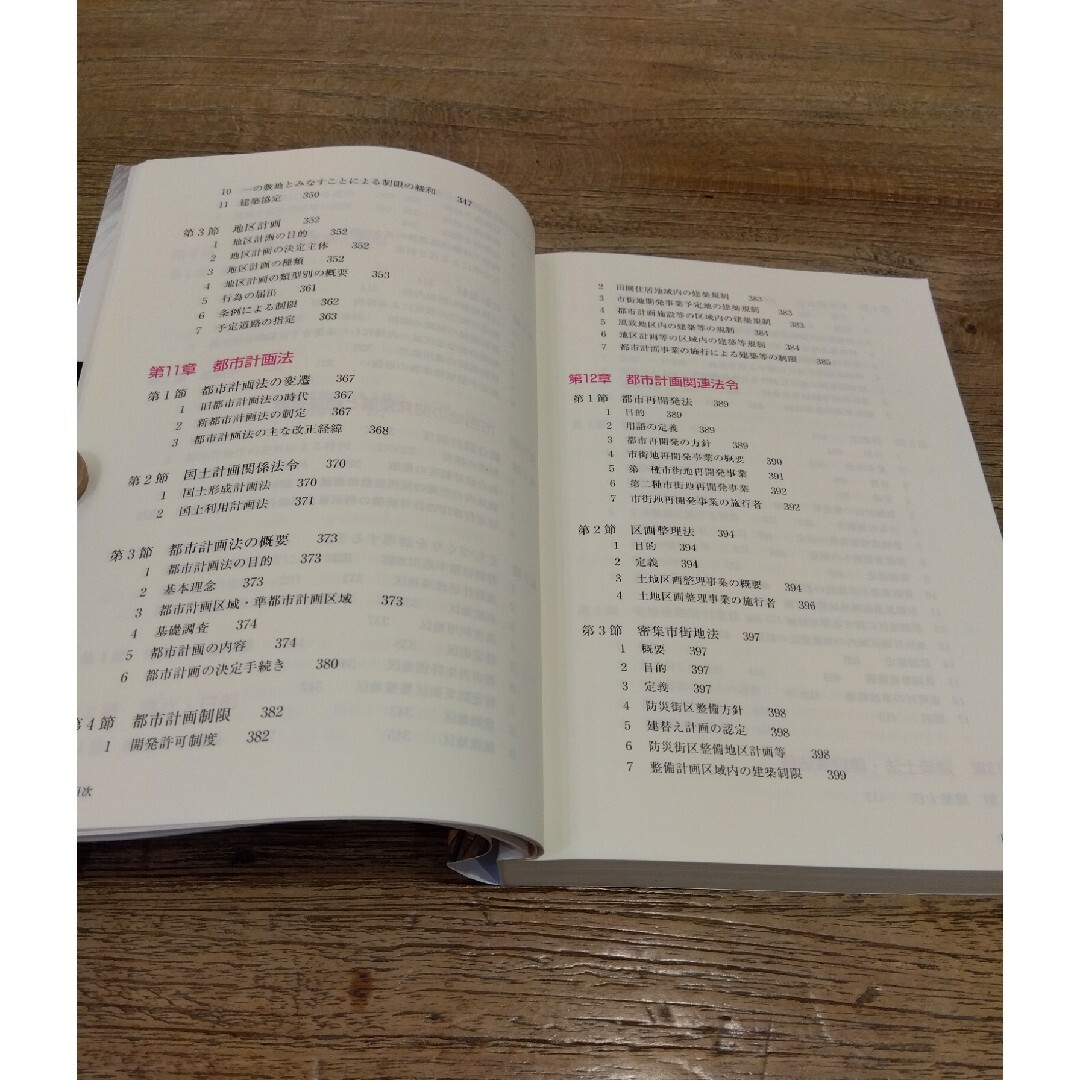 10 一の敷地とみなすことによる制限の緩和 347
11 建築協定 350
第3節 地区計画 352
1 地区計画の目的 352
2 地区計画の決定主体 352
3 地区計画の種類 352
4 地区計画の類型別の概要 353
5 行為の届出 361
6 条例による制限 362
7 予定道路の指定 363
第11章 都市計画法
第1節 都市計画法の変遷 367
1 旧都市計画法の時代 367
2 新都市計画法の制定 367
3 都市計画法の主な改正経緯 368
第2節 国土計画関係法令 370
1 国土形成計画法 370
2 国土利用計画法 371
第3節 都市計画法の概要 373
1 都市計画法の目的 373
2 基本理念 373
3 都市計画区域・準都市計画区域 373
4 基礎調査 374
5 都市計画の内容 374
6 都市計画の決定手続き 380
第4節 都市計画制限 382
1 開発許可制度 382
目次
2 田園住居地域内の建築規制 383
3 市街地開発事業予定地の建築規制 383
4 都市計画施設等の区域内の建築規制 383
5 風致地区内の建築等の規制 384
6 地区計画等の区域内の建築等規制 384
7 都市計画事業の施行による建築等の制限 385
第12章 都市計画関連法令
第1節 都市再開発法 389
1 目的 389
2 用語の定義 389
3 都市再開発の方針 389
4 市街地再開発事業の概要 390
5 第一種市街地再開発事業 391
6 第二種市街地再開発事業 392
7 市街地再開発事業の施行者 392
第2節 区画整理法 394
1 目的 394
2 定義 394
3 土地区画整理事業の概要 394
4 土地区画整理事業の施行者 396
第3節 密集市街地法 397
1 概要 397
2 目的 397
3 定義 397
4 防災街区整備方針 398
5 建替え計画の認定 398
6 防災街区整備地区計画等 398
7 整備計画区域内の建築制限 399